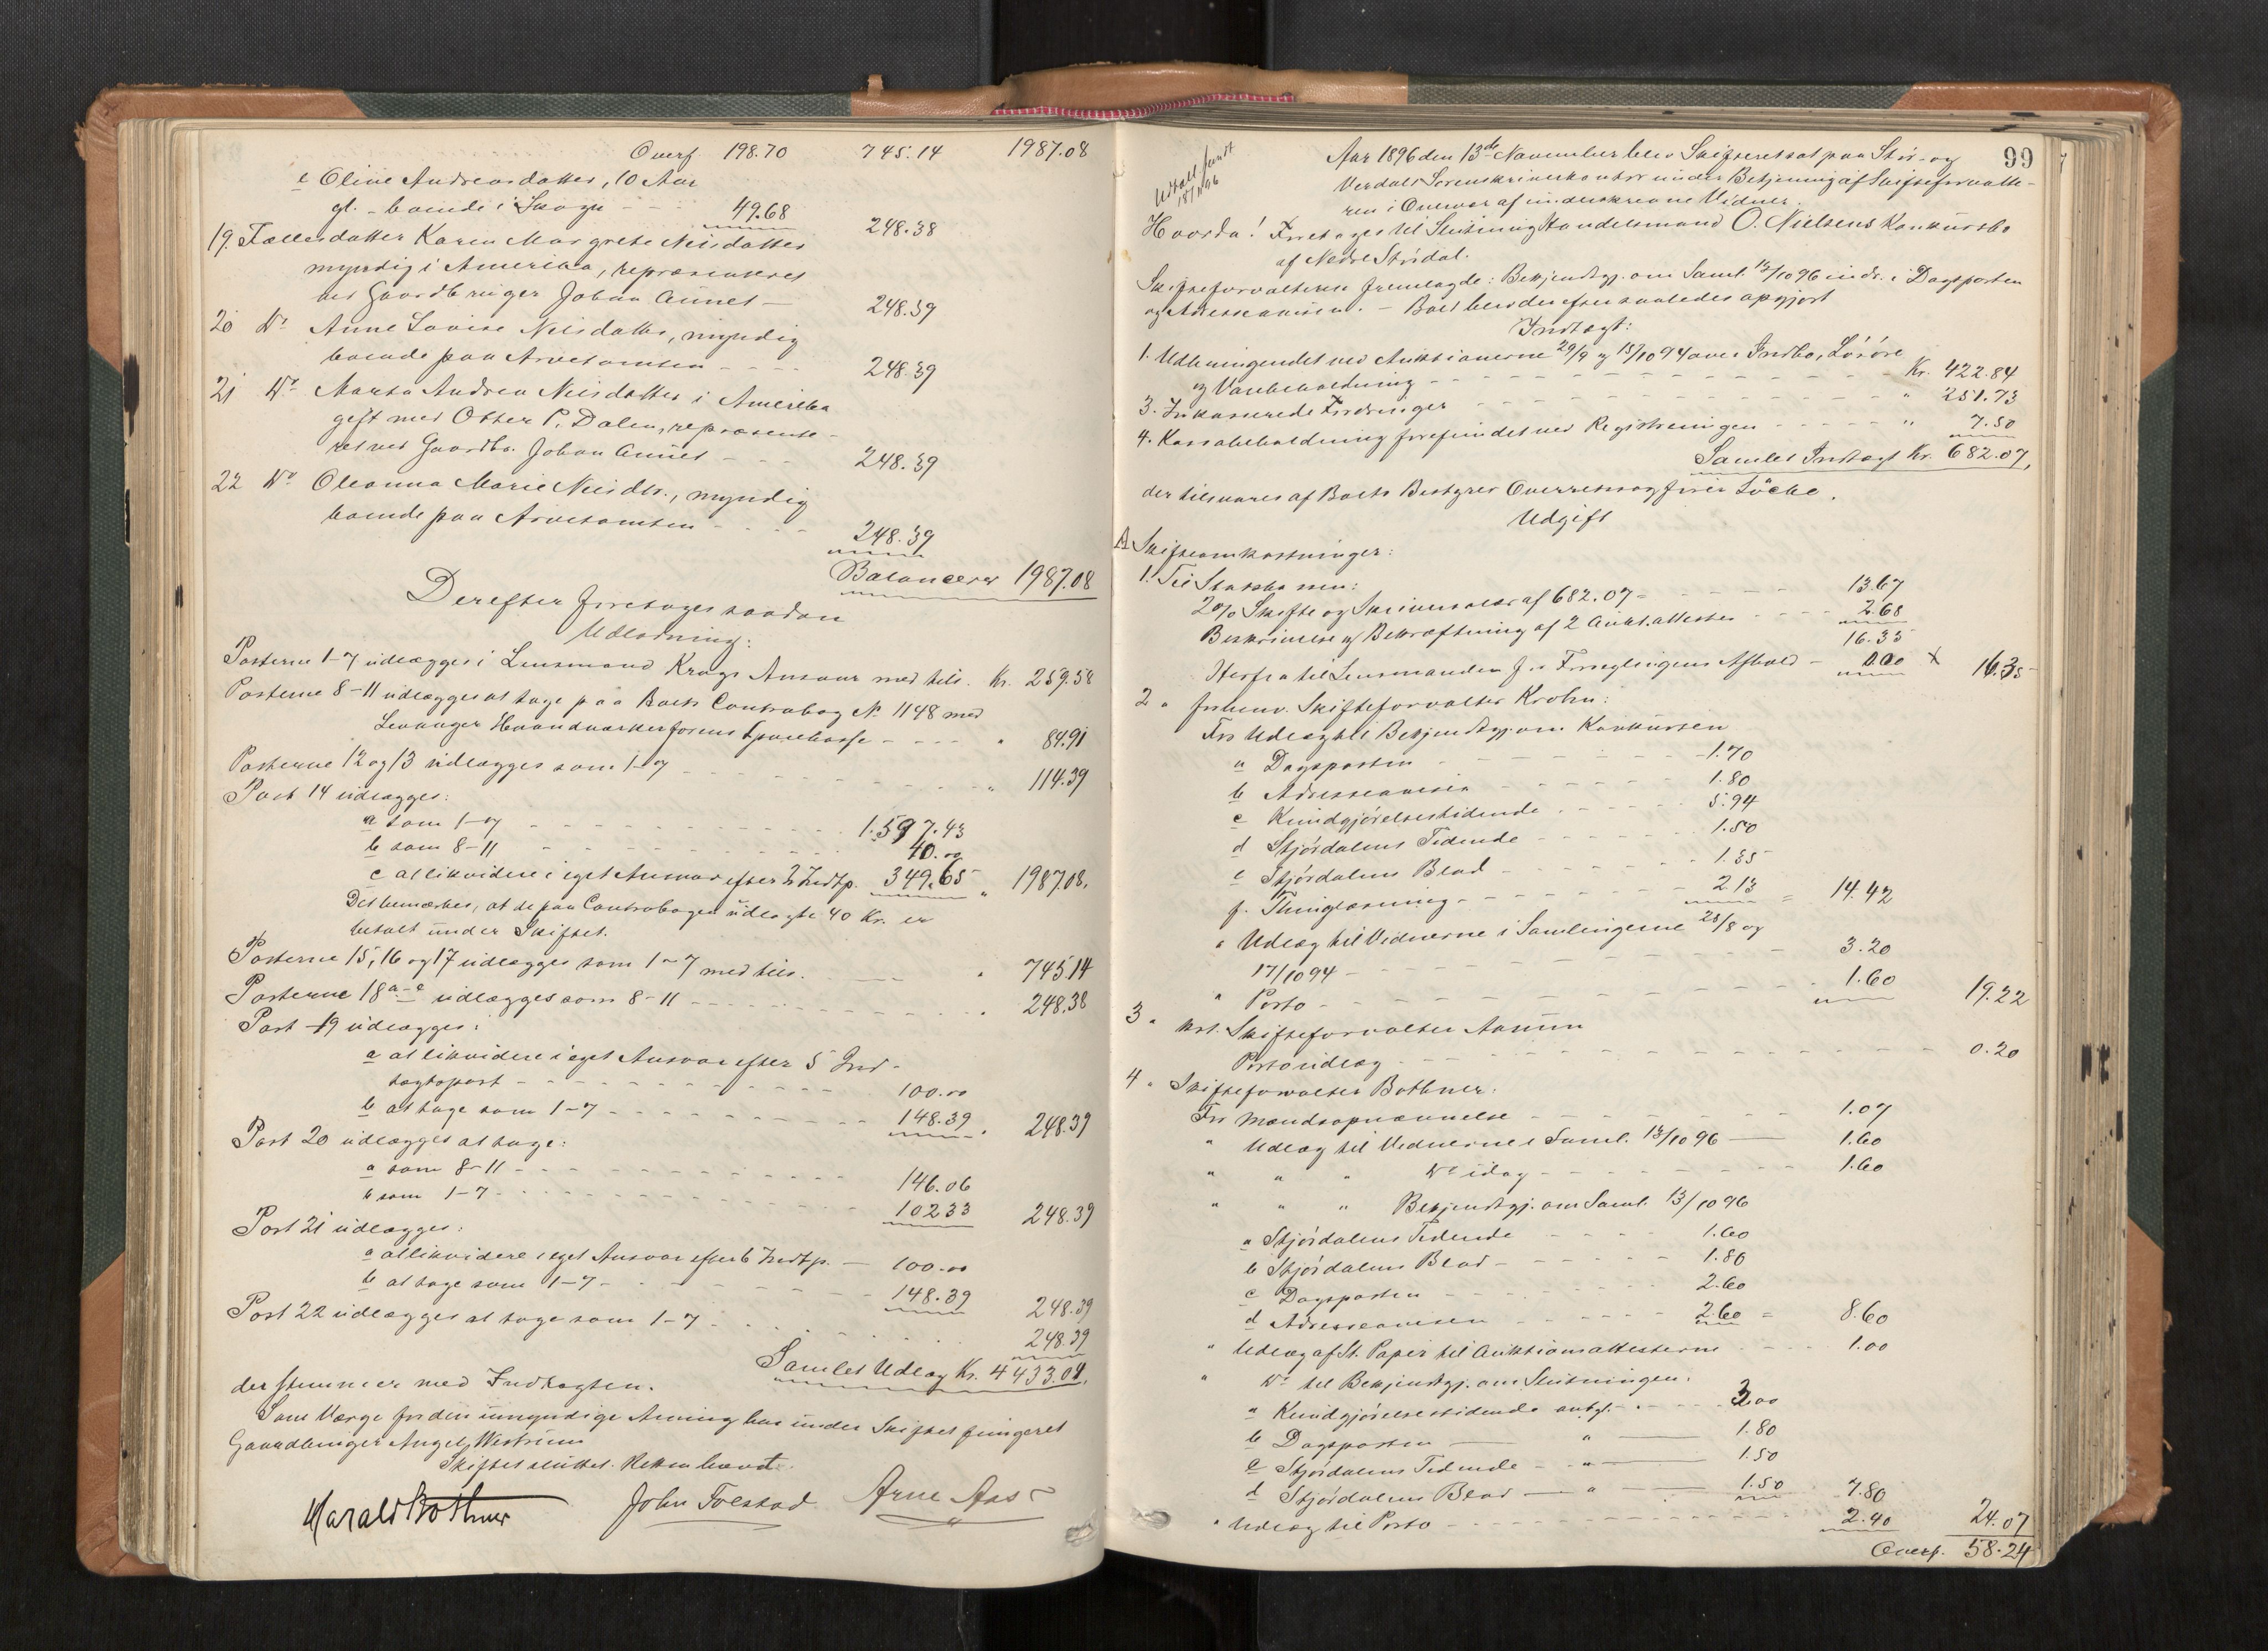 Overf. 198.70 745.14 1987.08
e Oline Andreasdatter, 10 Aar
gl. - boende i Skogn - - 49.68 248.38
19. Fællesdatter Karen Margrete Nilsdatter
myndig i Amerika, repræsenteret
ved Gaardbruger Johan Aunet - 248.39
20 Do Anne Lovise Nilsdatter, myndig
boende paa Arvetomten - - - - 248.39
21 Do Marta Andrea Nilsdatter i Amerika
gift med Otter P. Dalen, repræsente-
ret ved Gaardbr. Johan Aunet - - - 248.39
22 Do Oleanna Marie Nilsdtr., myndig
boende paa Arvetomten - - - - 248.39
Balancerer 1987.08
Derefter foretoges saadan
Udlodning:
Posterne 1-7 udlægges i Lensmand Krogs Ansvar med tils. Kr. 259.58
Posterne 8-11 udlægges at tage paa Boets Contrabog No 1148 med
Levanger Haandværkerforens Sparekasse - - - " 84.91
Posterne 12 og 13 udlægges som 1-7 - - - " 114.39
Post 14 udlægges:
a som 1-7 - - - 1.597.43
b som 8-11 - - - 40.00
c at likvidere i eget Ansvar efter 2 Indtp. 349.65 " 1987.08.
Det bemærkes, at de paa Contrabogen udlagte 40 Kr. er
betalt under Skiftet.
Posterne 15, 16 og 17 udlægges som 1-7 med tils. - - " 745.14
Posterne 18 a-e udlægges som 8-11 - - - " 248.38
Post 19 udlægges:
a at likvidere i eget Ansvar efter 5 Ind-
tægtspost - - - 100.00
b at tage som 1-7 - - - 148.39 " 248.39
Post 20 udlægges at tage:
a som 8-11 - - - 146.06
b som 1-7 - - - 102.33 248.39
Post 21 udlægges:
a at likvidere i eget Ansvar efter 6 Indtp. - 100.00
b at tage som 1-7 - - - 148.39 248.39
Post 22 udlægges at tage som 1-7 - - - 248.39
Samlet Udlæg Kr. 4433.04,
der stemmer med Indtægten.
Som Værge for den umyndige Arving har under Skiftet fungeret
Gaardbruger Angel Westrum
Skiftet sluttet. Retten hævet.
Harald Bothner John Tolstad Arne Aas
99
Udtalt sendt
18/11 96
Aar 1896 den 13de November blev Skifteret sat paa Stør- og
Verdals Sorenskriverkontor under Betjening af Skifteforvalte-
ren i Overvær af underskrevne Vidner.
Hvorda! Foretoges til Slutning Handelsmand O. Nielsens Konkursbo
af Nedre Stjørdal.
Skifteforvalteren fremlagde: Bekjendtgj. om Saml. 13/10 96 indr. i Dagsposten
og Adresseavisen. - Boet blev derefter saaledes opgjort
Indtægt:
1. Udbringendet ved Auktionerne 29/9 og 15/10 94 over Indbo, Løsøre
og Varebeholdning - - - Kr. 422.84
3. Inkasserede Fordringer - - - " 251.73
4. Kassabeholdning forefundet ved Registreringen - - - " 7.50
Samlet Indtægt Kr. 682.07,
der tilsvares af Boets Bestyrer Overretssagfører Løcke.
Udgift
A Skifteomkostninger:
1. Til Statskassen:
2 % Skifte og Skriversalær af 682.07 - - - 13.67
Beskrivelse og Bekræftning af 2 Aukt.attester - - - 2.68
16.35
Herfra til Lensmanden for Forseglingens Afhold - 0.00 x 16.35
2 " forhenv. Skifteforvalter Krohn:
For Udlæg til Bekjendtgj. om Konkursen
a Dagsposten - - - 1.70
b Adresseavisen - - - 1.80
c Kundgjørelsestidende - - - 5.94
d Stjørdalens Tidende - - - 1.50
e Stjørdalens Blad - - - 1.35
f. Thinglæsning - - - 2.13 = 14.42
" Udlæg til Vidnerne i Samlingerne 28/8 og
17/10 94 - - - 3.20
" Porto - - - 1.60 19.22
3 " kst. Skifteforvalter Aamun
Portoudlæg - - - 0.20
4 " Skifteforvalter Bothner:
For Mændsopnævnelse - - - 1.07
" Udlæg til Vidnerne i Saml. 13/10 96 - 1.60
" " " Do idag - - - 1.60
" " " Bekjendtgj. om Saml. 13/10 96
a Stjørdalens Tidende - - - 1.60
b Stjørdalens Blad - - - 1.80
c Dagsposten - - - 2.60
d Adresseavisen - - - 2.60 = 8.60
" Udlæg af St. Papir til Auktionsattesterne - - - 1.00
" Do til Bekjendtgj. om Slutningen:
a Kundgjørelsestidende antgl. - - - 3.00
b Dagsposten - " - 1.80
c Stjørdalens Tidende - " - 1.50
d Stjørdalens Blad - " - 1.50 7.80
" Udlæg til Porto - - - 2.40 24.07
Overf. 58.24